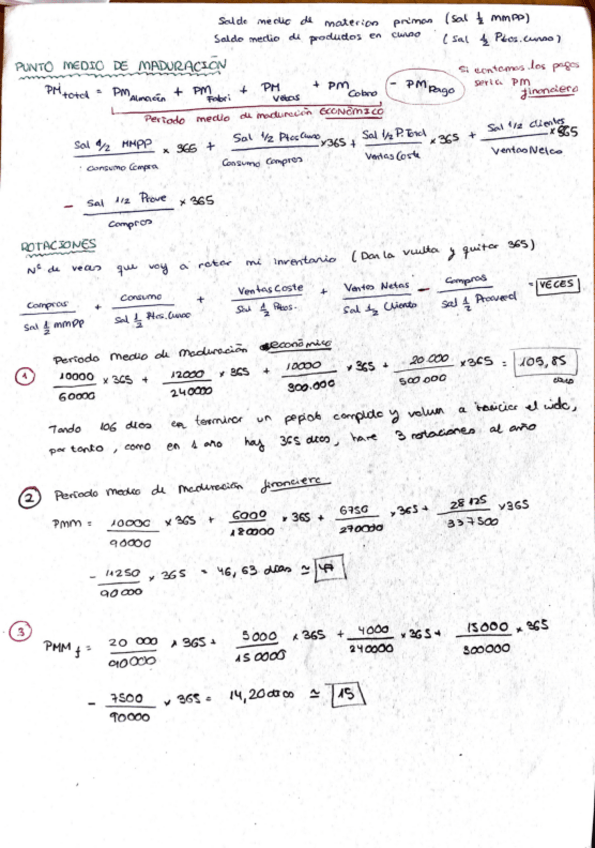 Saldo medio de materias primas (Sal ½ MMPP)
Saldo medio de productos en curso (Sal ½ Ptos.Curso)
PUNTO MEDIO DE MADURACIÓN
PM total = PM Almacén + PM Fabri + PM Vtas + PM Cobro - PM Pago
Si contamos los pagos seria PM financiero
Periodo medio de maduración ECONÓMICO
Sal ½ MMPP / Consumo Compra x 365 + Sal ½ Ptos Curso / Consumo Compras x 365 + Sal ½ P.Term / Ventas Coste x 365 + Sal ½ clientes / Ventas Netas x 365
- Sal ½ Prove / Compras x 365
ROTACIONES
Nº de veces que voy a rotar mi inventario (Dar la vuelta y quitar 365)
Compras / Sal ½ mmPP + Consumo / Sal ½ Ptos.Curso + Ventas Coste / Sal ½ Ptos. + Ventas Netas / Sal ½ Cliente - Compras / Sal ½ Proveed = VECES
Periodo medio de maduración económico
① 10000 / 60000 x 365 + 12000 / 240000 x 365 + 10000 / 300.000 x 365 + 20.000 / 500.000 x 365 = 105,85
Tardo 106 días en terminar un completo y volver a iniciar el ciclo,
por tanto, como en 1 año hay 365 días, haré 3 rotaciones al año
② Periodo medio de maduración financiera
PMM = 10000 / 90000 x 365 + 6000 / 180000 x 365 + 6750 / 270000 x 365 + 28125 / 337500 x 365
- 11250 / 90000 x 365 = 46,63 días ≃ 47
③ PMM f = 20 000 / 90000 x 365 + 5000 / 150000 x 365 + 4000 / 240000 x 365 + 15000 / 300000 x 365
- 7500 / 90000 x 365 = 14,20 días ≃ 15